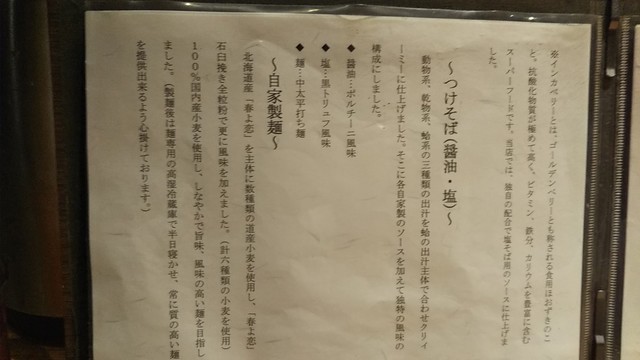 ※インカベリーとは、ゴールデンベリーとも称される食用ほおずきのこ
と。抗酸化物質が極めて高く、ビタミン、鉄分、カリウムを豊富に含む
スーパーフードです。当店では、独自の配合で塩そば用のソースに仕上げま
した。
～つけそば（醤油・塩）～
動物系、乾物系、蛤系の三種類の出汁を蛤の出汁主体で合わせクリィ
ーミーに仕上げました。そこに各自家製のソースを加えて独特の風味の
構成にしました。
◆ 醤油…ポルチーニ風味
◆ 塩…黒トリュフ風味
◆ 麺…中太平打ち麺
～自家製麺～
北海道産「春よ恋」を主体に数種類の道産小麦を使用し、「春よ恋」
石臼挽き全粒粉で更に風味を加えました。（計六種類の小麦を使用）
１００％国内産小麦を使用し、しなやかで旨味、風味の高い麺を目指し
ました。（製麺後は麺専用の高湿冷蔵庫で半日寝かせ、常に質の高い麺
を提供出来るよう心掛けております。）